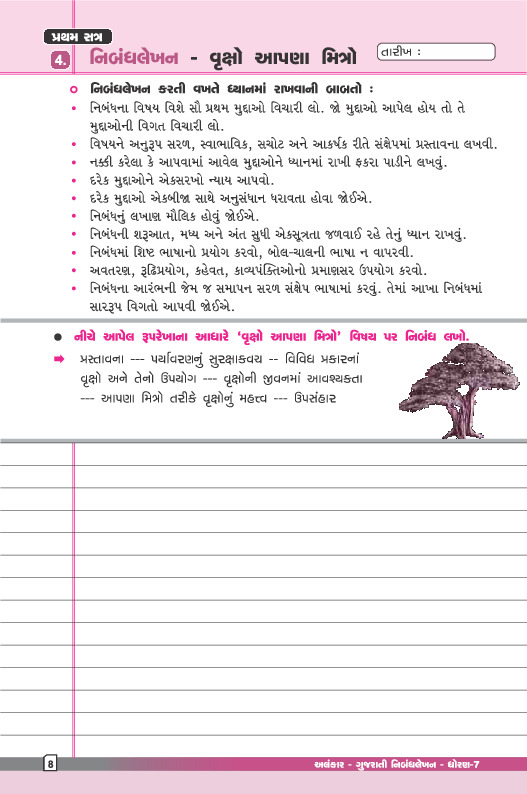 પ્રથમ સત્ર
4. નિબંધલેખન - વૃક્ષો આપણા મિત્રો
તારીખ :
નિબંધલેખન કરતી વખતે ધ્યાનમાં રાખવાની બાબતો :
• નિબંધના વિષય વિશે સૌ પ્રથમ મુદ્દાઓ વિચારી લો. જો મુદ્દાઓ આપેલ હોય તો તે
મુદ્દાઓની વિગત વિચારી લો.
• વિષયને અનુરૂપ સરળ, સ્વાભાવિક, સચોટ અને આકર્ષક રીતે સંક્ષેપમાં પ્રસ્તાવના લખવી.
• નક્કી કરેલા કે આપવામાં આવેલ મુદ્દાઓને ધ્યાનમાં રાખી ફકરા પાડીને લખવું.
• દરેક મુદ્દાઓને એકસરખો ન્યાય આપવો.
• દરેક મુદ્દાઓ એકબીજા સાથે અનુસંધાન ધરાવતા હોવા જોઈએ.
• નિબંધનું લખાણ મૌલિક હોવું જોઈએ.
• નિબંધની શરૂઆત, મધ્ય અને અંત સુધી એકસૂત્રતા જળવાઈ રહે તેનું ધ્યાન રાખવું.
• નિબંધમાં શિષ્ટ ભાષાનો પ્રયોગ કરવો, બોલ-ચાલની ભાષા ન વાપરવી.
• અવતરણ, રૂઢિપ્રયોગ, કહેવત, કાવ્યપંક્તિઓનો પ્રમાણસર ઉપયોગ કરવો.
• નિબંધના આરંભની જેમ જ સમાપન સરળ સંક્ષેપ ભાષામાં કરવું. તેમાં આખા નિબંધમાં
સારરૂપ વિગતો આપવી જોઈએ.
● નીચે આપેલ રૂપરેખાના આધારે ‘વૃક્ષો આપણા મિત્રો’ વિષય પર નિબંધ લખો.
➡ પ્રસ્તાવના --- પર્યાવરણનું સુરક્ષાકવચ -- વિવિધ પ્રકારનાં
વૃક્ષો અને તેનો ઉપયોગ --- વૃક્ષોની જીવનમાં આવશ્યકતા
--- આપણા મિત્રો તરીકે વૃક્ષોનું મહત્ત્વ --- ઉપસંહાર
8
અલંકાર - ગુજરાતી નિબંધલેખન - ધોરણ-7